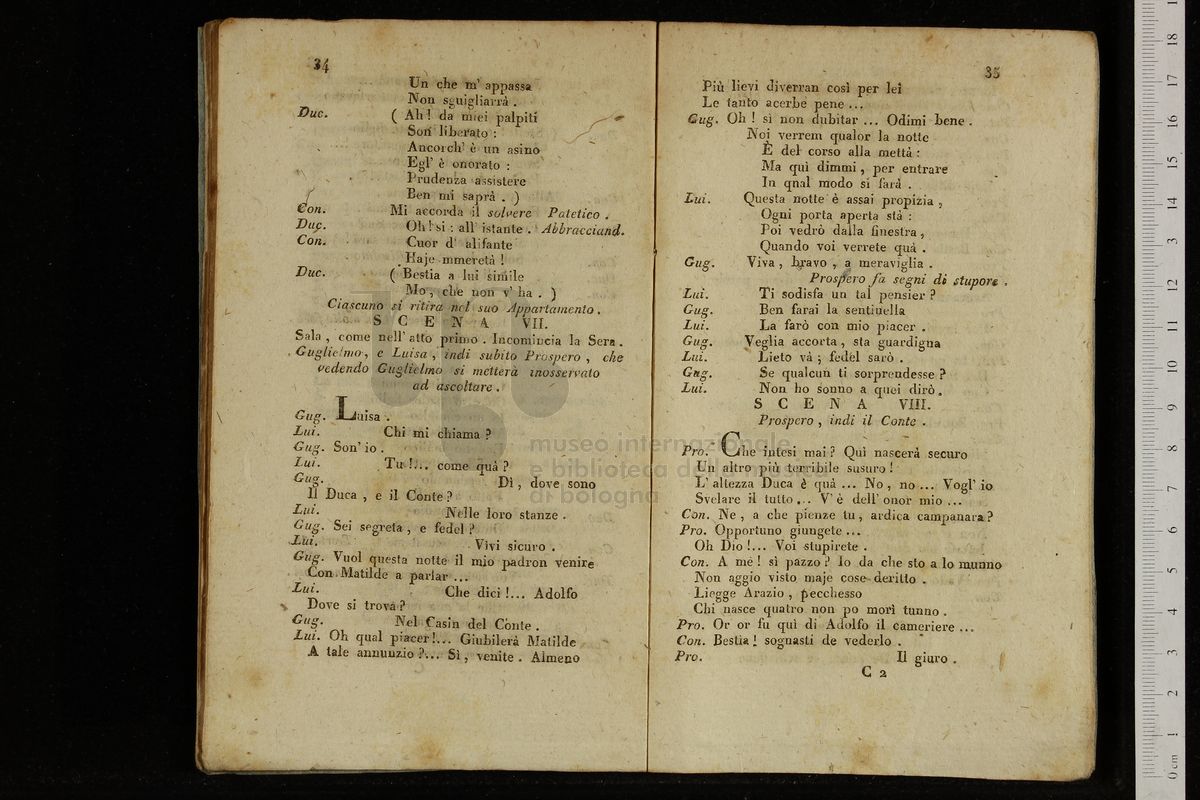 34
Un che m' appassa
Non sguigliarrà .
Duc. ( Ah ! da miei palpiti
Son liberato :
Ancorch' è un asino
Egl' è onorato :
Prudenza assistere
Ben mi saprà . )
Con. Mi accorda il solvere Patetico .
Duc. Oh ! si : all' istante . Abbracciand.
Con. Cuor d' alifante
Haje mmeretà !
Duc. ( Bestia a lui simile
Mo , che non v' ha . )
Ciascuno si ritira nel suo Appartamento .
S C E N A VII.
Sala , come nell' atto primo . Incomincia la Sera .
Guglielmo , e Luisa , indi subito Prospero , che
vedendo Guglielmo si metterà inosservato
ad ascoltare .
Gug. Luisa .
Lui. Chi mi chiama ?
Gug. Son' io .
Lui. Tu !... come quà ?
Gug. Dì , dove sono
Il Duca , e il Conte ?
Lui. Nelle loro stanze .
Gug. Sei segreta , e fedel ?
Lui. Vivi sicuro .
Gug. Vuol questa notte il mio padron venire
Con Matilde a parlar ...
Lui. Che dici !... Adolfo
Dove si trova ?
Gug. Nel Casin del Conte .
Lui. Oh qual piacer !... Giubilerà Matilde
A tale annunzio ?... Sì , venite . Almeno
35
Più lievi diverran così per lei
Le tanto acerbe pene ...
Gug. Oh ! sì non dubitar ... Odimi bene .
Noi verrem qualor la notte
È del corso alla mettà :
Ma quì dimmi , per entrare
In qnal modo si farà .
Lui. Questa notte è assai propizia ,
Ogni porta aperta stà :
Poi vedrò dalla finestra ,
Quando voi verrete quà .
Gug. Viva , bravo , a meraviglia .
Prospero fa segni di stupore .
Lui. Ti sodisfa un tal pensier ?
Gug. Ben farai la sentinella
Lui. La farò con mio piacer .
Gug. Veglia accorta , sta guardigna
Lui. Lieto và ; fedel sarò .
Gug. Se qualcun ti sorprendesse ?
Lui. Non ho sonno a quei dirò .
S C E N A VIII.
Prospero , indi il Conte .
Pro. Che intesi mai ? Quì nascerà securo
Un altro più terribile susuro !
L' altezza Duca è quà ... No , no ... Vogl' io
Svelare il tutto ... V' è dell' onor mio ...
Con. Ne , a che pienze tu , ardica campanara ?
Pro. Opportuno giungete ...
Oh Dio !... Voi stupirete .
Con. A mè ! sì pazzo ? Io da che sto a lo munno
Non aggio visto maje cose deritto .
Liegge Arazio , pecchesso
Chi nasce quatro non po morì tunno .
Pro. Or or fu quì di Adolfo il cameriere ...
Con. Bestia ! sognasti de vederlo .
Pro. Il giuro .
C 2
museo internazionale
e biblioteca della musica
di bologna
0 cm 1 2 3 4 5 6 7 8 9 10 11 12 13 14 15 16 17 18